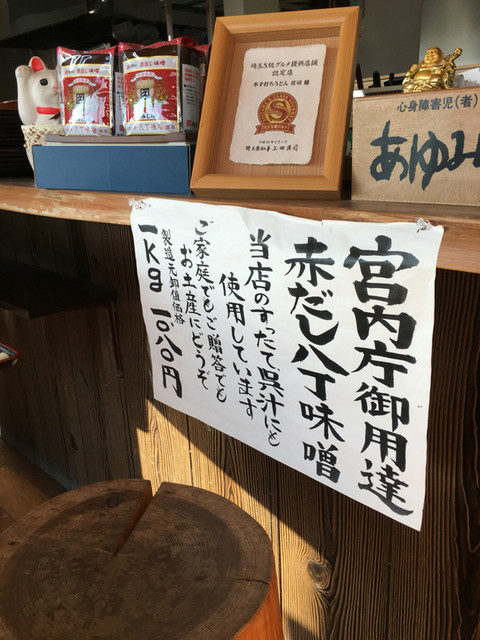 宮内庁御用達
赤だし八丁味噌
当店のすったて呉汁にも
使用しています
ご家庭でもご贈答でも
お土産にどうぞ
製造元卸値価格
一Kg 一〇八〇円
埼玉S級グルメ提供店舗
認定店
S
埼玉県知事 上田清司
心身障害児(者)
あゆみ